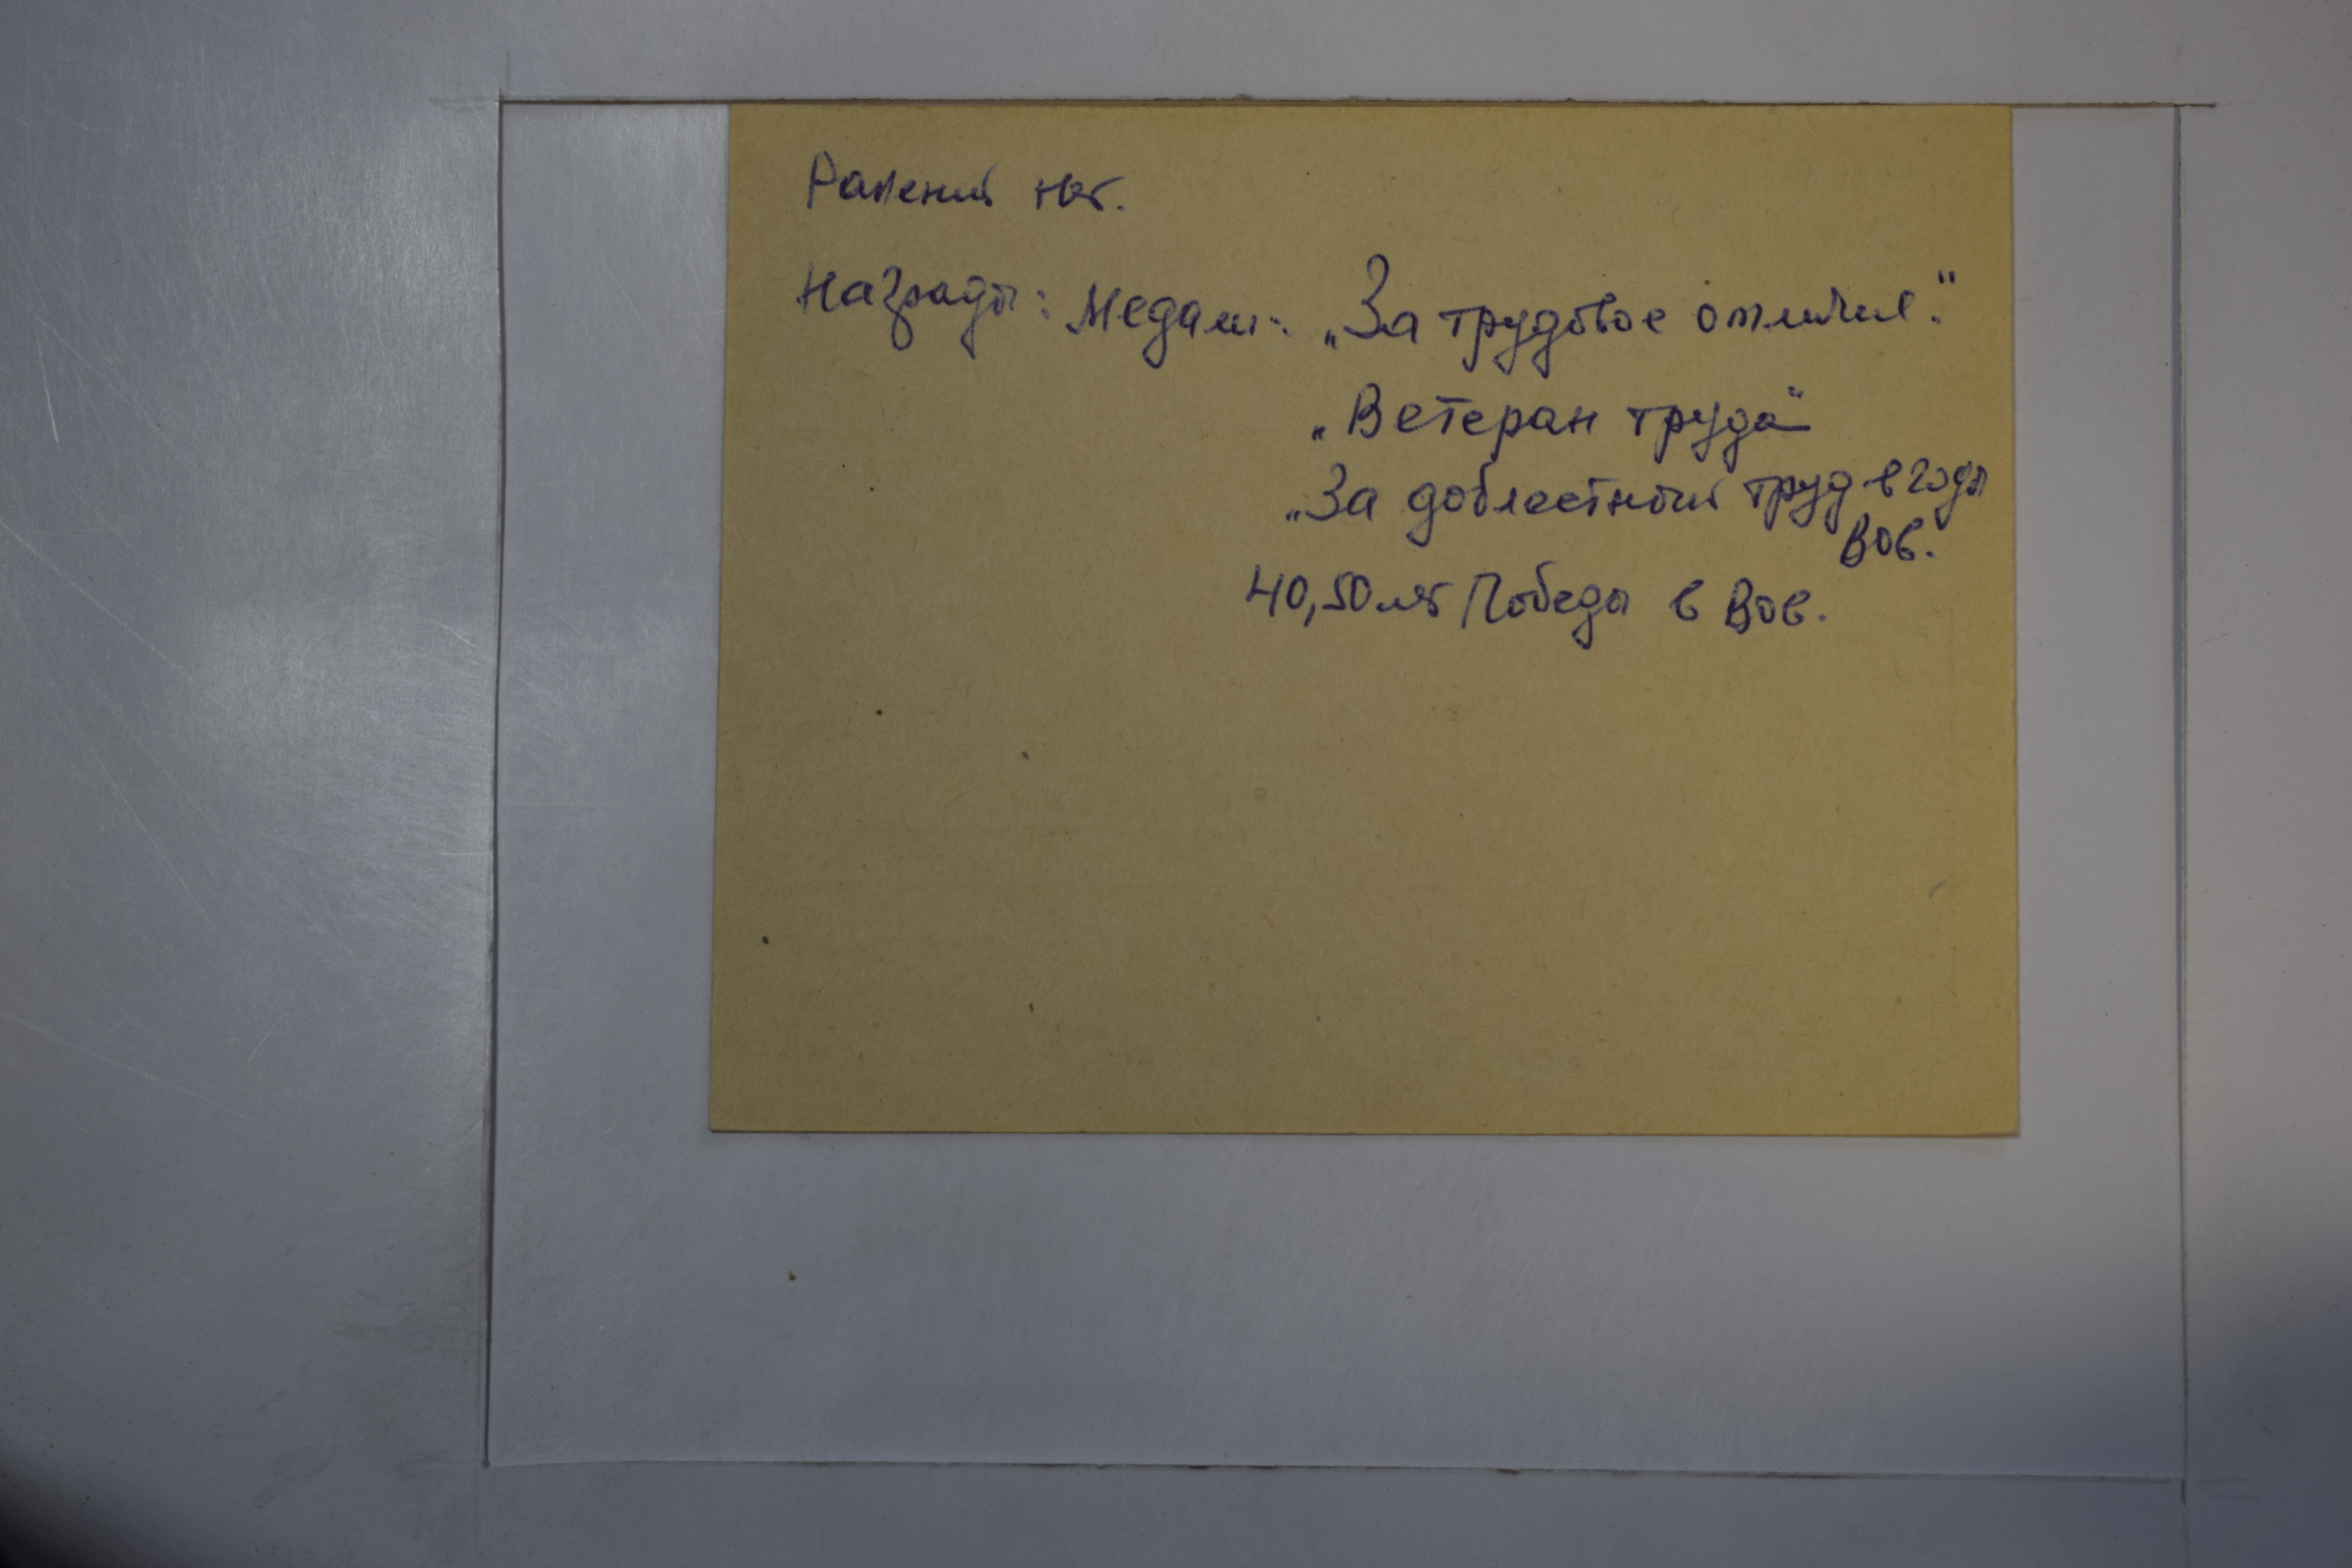 Ранений нет.
Награды: Медали: „За трудовое отличие."
„Ветеран труда"
„За доблестный труд в годы
ВОв.
40,50 лет Победы в ВОв.